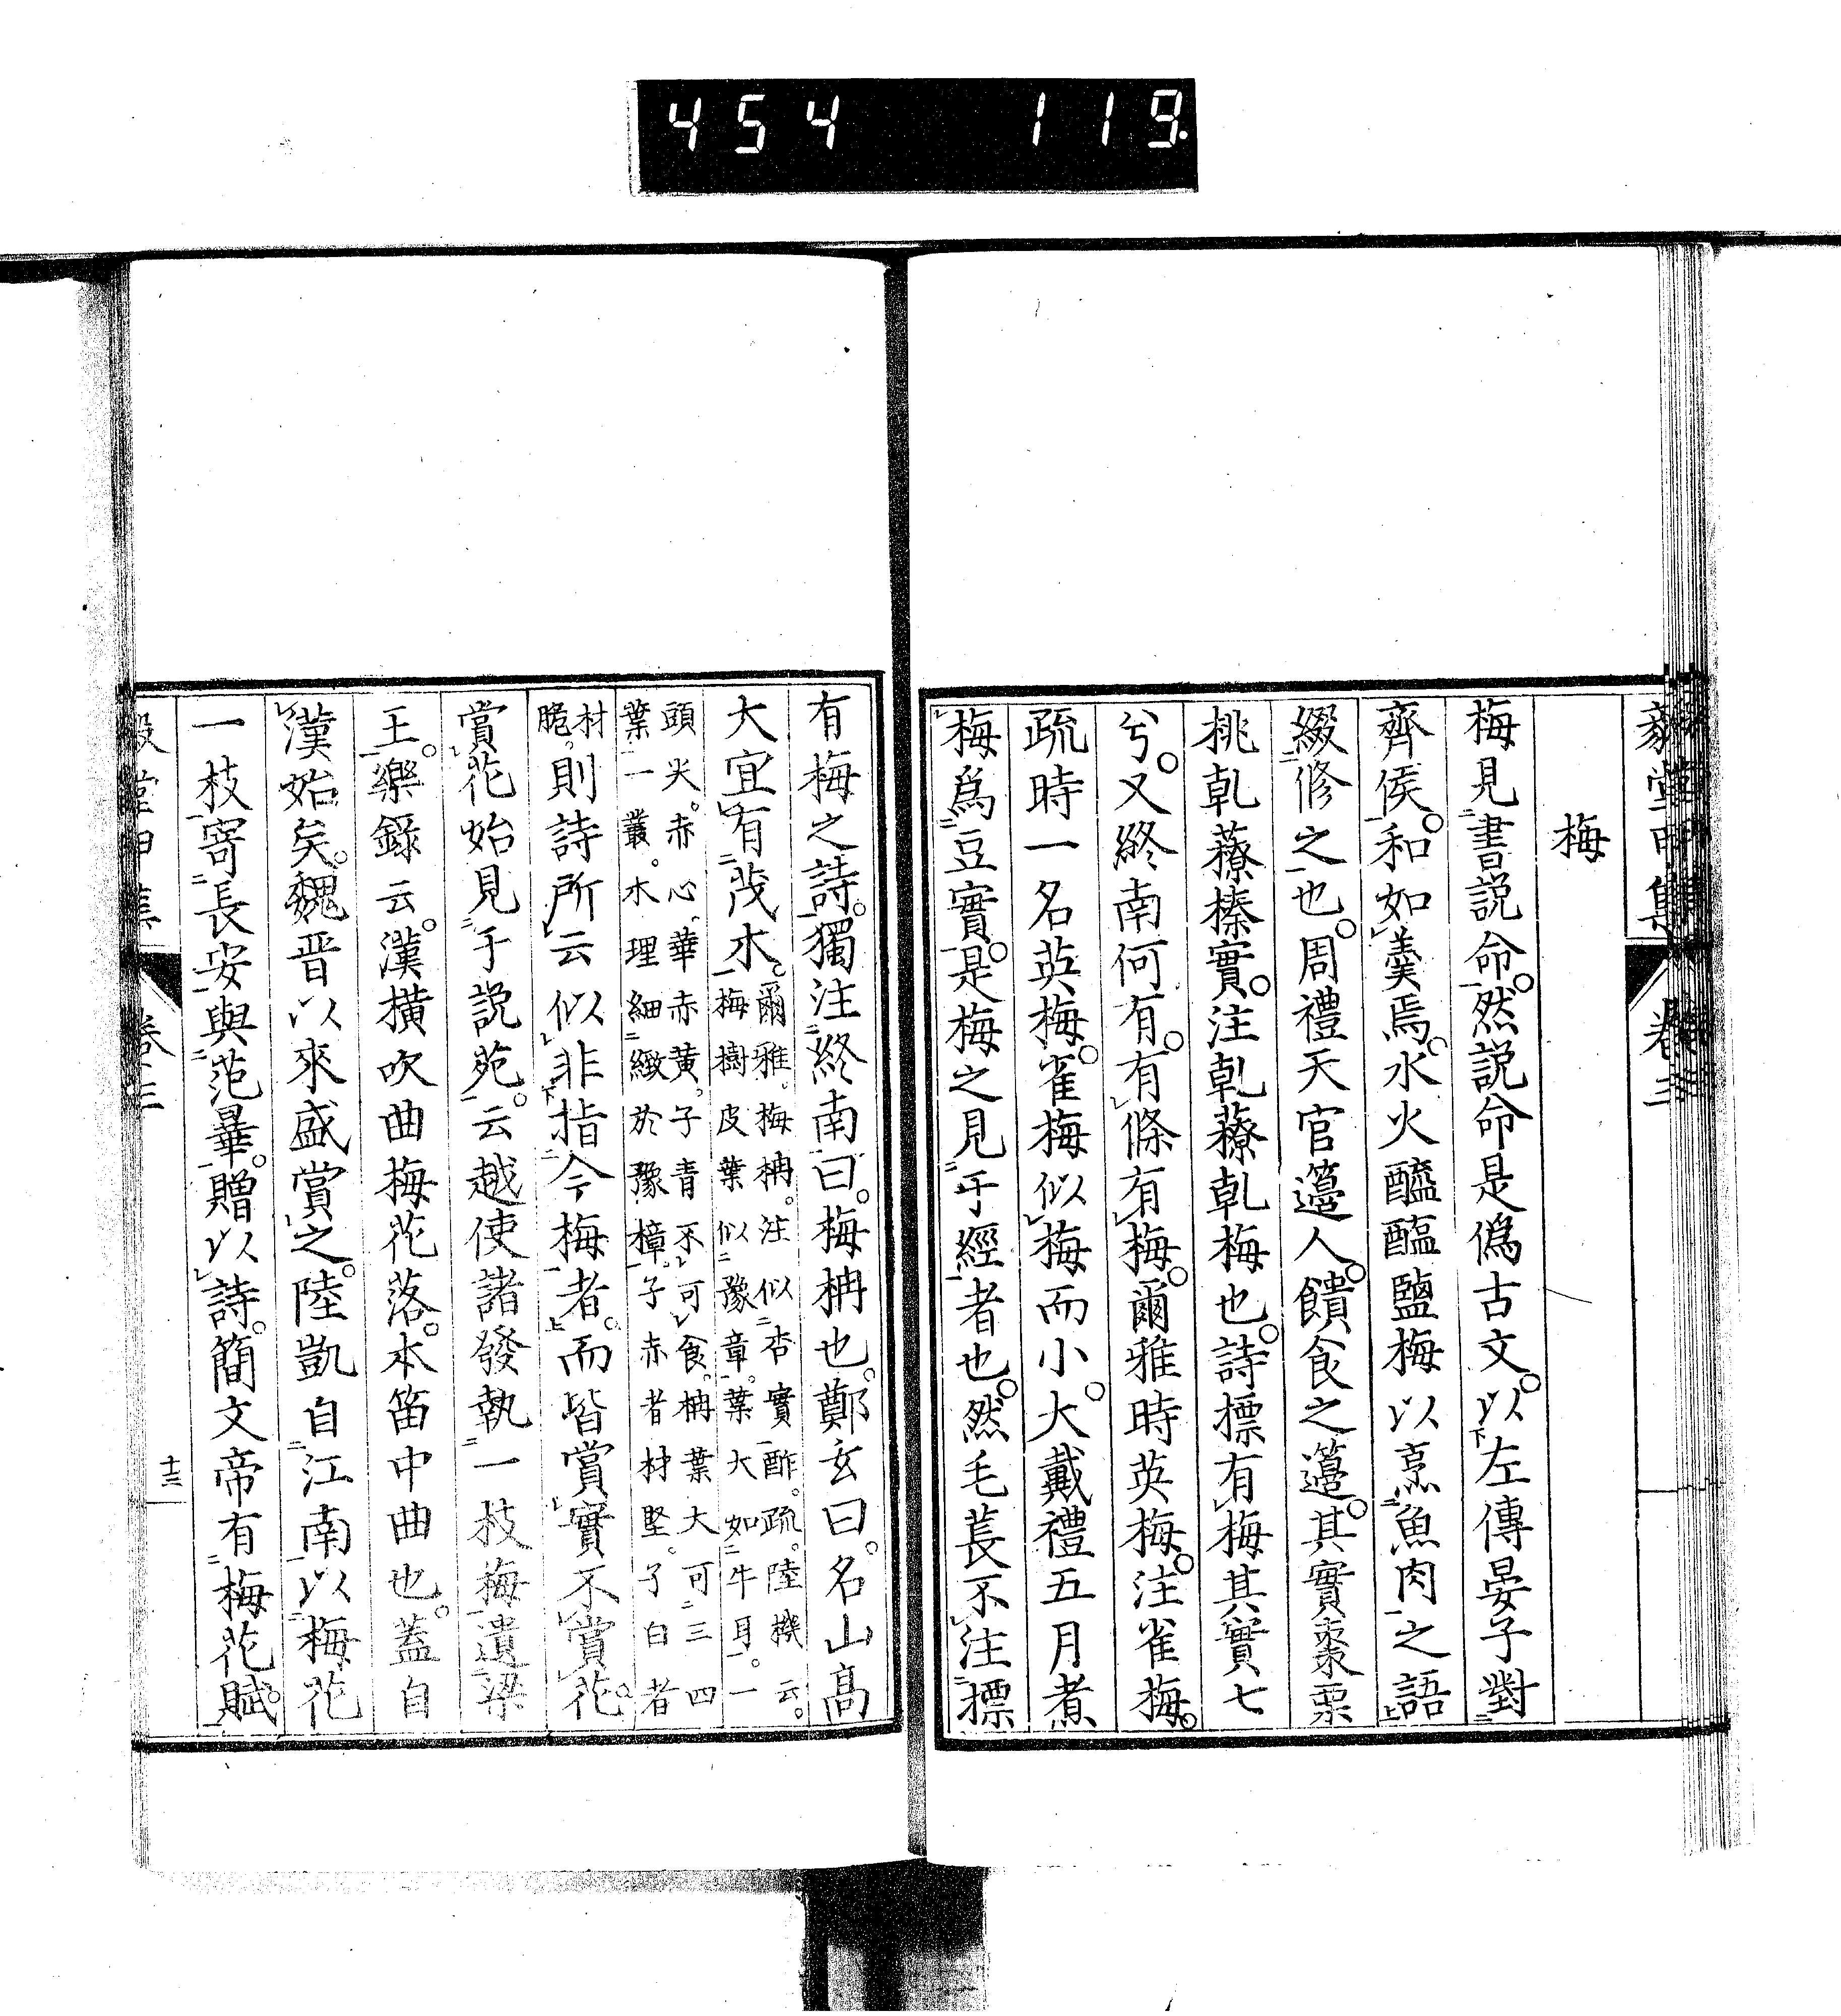 454 119
梅
梅見書説命。然説命是僞古文。以左傳晏子對
齊侯。和如羹焉。水火醯醢鹽梅以烹魚肉之語
綴修之也。周禮天官籩人。饋食之籩。其實棗栗
桃乾䕩榛實。注乾䕩乾梅也。詩摽有梅其實七
兮。又終南何有。有條有梅。爾雅時英梅。注雀梅。
疏時一名英梅。雀梅似梅而小。大戴禮五月煮
梅爲豆實。是梅之見于經者也。然毛萇不注摽
有梅之詩。獨注終南曰。梅柟也。鄭玄曰。名山高
大宜有茂木。爾雅。梅柟。注似杏實酢。疏。陸機云。
梅樹皮葉似豫章。葉大如牛耳。一
頭尖。赤心。華赤黄。子青不可食。柟葉大可三四
葉一叢。木理細緻於豫樟。子赤者材堅。子白者
材
脆。則詩所云似非指今梅者。而皆賞實不賞花。
賞花始見于説苑。云越使諸發執一枝梅遺梁
王。樂錄云。漢横吹曲梅花落。本笛中曲也。蓋自
漢始矣。魏晋以來盛賞之。陸凱自江南以梅花
一枝寄長安與范曄。贈以詩。簡文帝有梅花賦。
卷三
十三